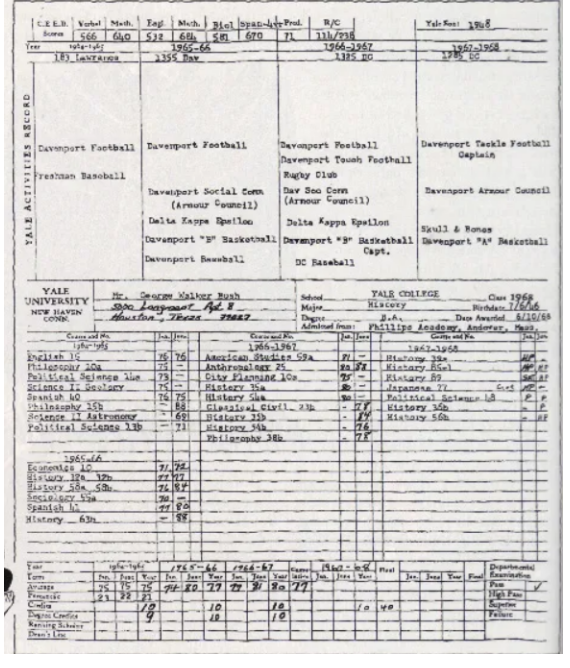 C.E.E.B. Verbal Math. Engl Math. Biol Span-4yr Prof. R/C Yale Score 1968
Scores 566 640 532 684 581 670 71 114/238
Year 1964-1965 1965-66 1966-1967 1967-1968
183 Lawrance 1355 Dav 1325 DC 1285 DC
YALE ACTIVITIES RECORD
Davenport Football Davenport Football Davenport Football Davenport Tackle Football
Davenport Touch Football Captain
Freshman Baseball Rugby Club
Davenport Social Comm Dav Soc Comm Davenport Armour Council
(Armour Council) (Armour Council)
Delta Kappa Epsilon Delta Kappa Epsilon Skull & Bones
Davenport "B" Basketball Davenport "B" Basketball Davenport "A" Basketball
Capt.
Davenport Baseball DC Baseball
YALE UNIVERSITY NEW HAVEN CONN.
Mr. George Walker Bush
Houston, Texas 77027
School YALE COLLEGE Class 1968
Major History Birthdate 7/6/46
Degree B.A. Date Awarded 6/10/68
Admitted from: Phillips Academy, Andover, Mass.
Course and No. Jan. June Course and No. Jan. June Course and No. Jan. June
1964-1965 1966-1967 1967-1968
English 15 76 76 American Studies 59a 71 - History 39a HP -
Philosophy 10a 75 - Anthropology 25 80 83
Political Science 14a 73 - City Planning 10a 75 - History 89
Science II Geology 75 - History 35a Japanese 77
Spanish 40 76 75 History 54a Political Science 48 P P
Philosophy 15b - 88 Classical Civil. 23b - 78 History 36b - P
Science II Astronomy - 69 History 35b - 84 History 56b - HP
Political Science 13b - 71 History 54b - 76
Philosophy 38b - 78
1965-66
Economics 10 71 72
History 32a 32b 77 77
History 58a 58b 76 84
Sociology 55a 70 -
Spanish 41 77 80
History 63b - 88
Year 1964-1965 1965-66 1966-67 Cumulative 1967-68 Final Departmental Examination
Term Jan. June Year Jan. June Year Jan. June Year Jan. June Year Jan. June Year Final Pass ✓
Average 75 75 75 74 80 77 77 81 80 77 High Pass
Percentile 23 22 21 Superior
Credits 10 10 10 10 40 Failure
Degree Credits 9 10 10
Ranking Scholar
Dean's List